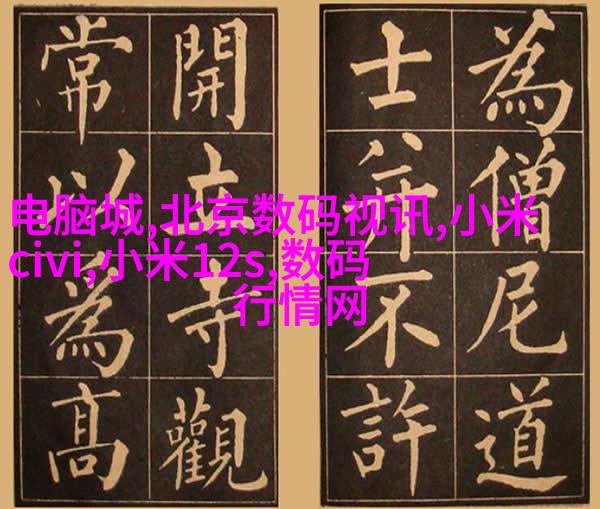 為僧尼道
士并不許
開在寺觀
常以為高
电脑城,北京数码视讯,小米
civi,小米12s,数码
行情网